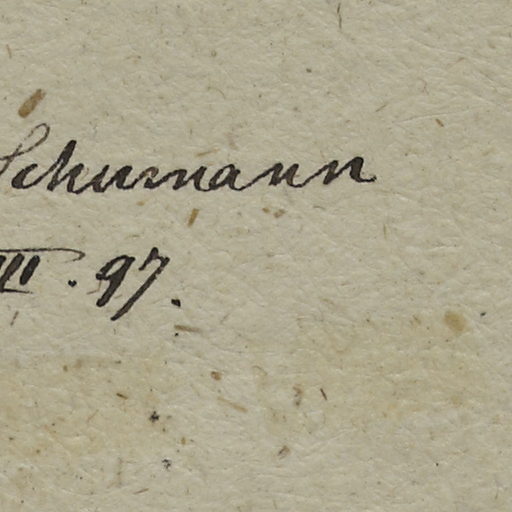 Schumann
III. 97.